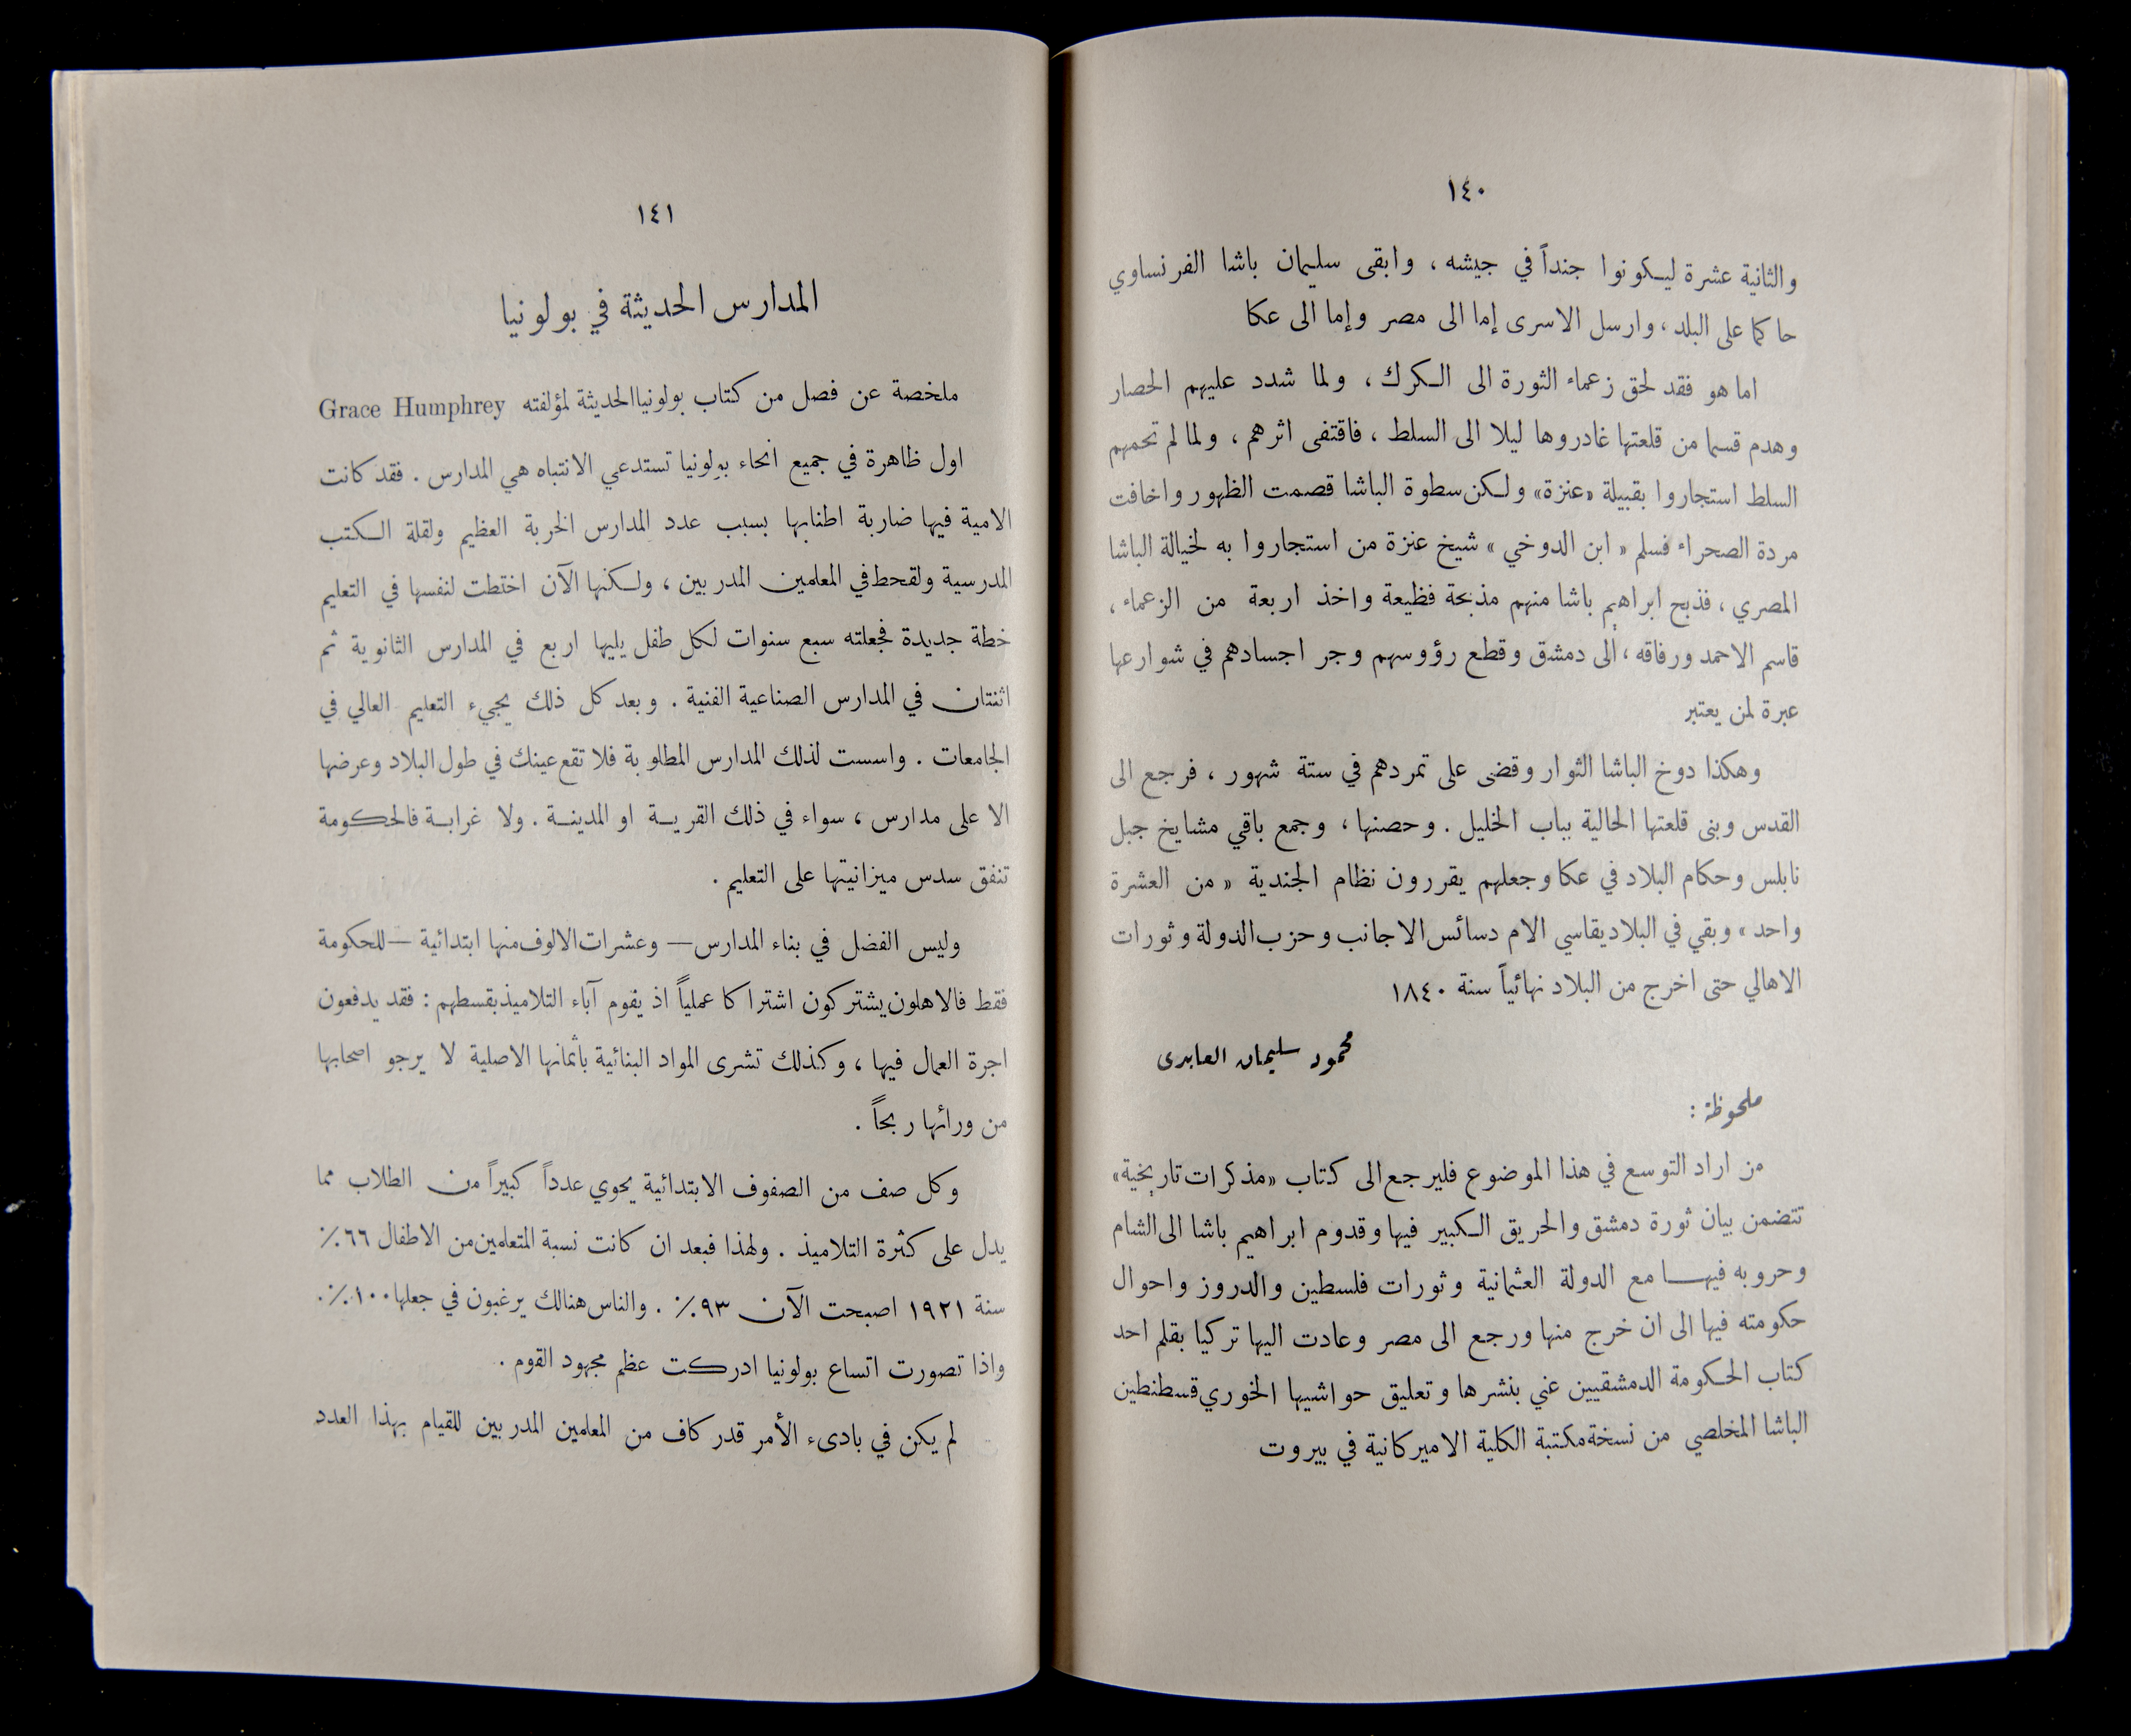 ١٤٠
والثانية عشرة ليكونوا جنداً في جيشه ، وابقى سليمان باشا الفرنساوي
حاكما على البلد ، وارسل الاسرى إما الى مصر وإما الى عكا
اما هو فقد لحق زعماء الثورة الى الكرك ، ولما شدد عليهم الحصار
وهدم قسما من قلعتها غادروها ليلا الى السلط ، فاقتفى اثرهم ، ولما لم تحمهم
السلط استجاروا بقبيلة «عنزة» ولكن سطوة الباشا قصمت الظهور واخافت
مردة الصحراء فسلم « ابن الدوخي » شيخ عنزة من استجاروا به لخيالة الباشا
المصري ، فذبح ابراهيم باشا منهم مذبحة فظيعة واخذ اربعة من الزعماء ،
قاسم الاحمد ورفاقه ، الى دمشق وقطع رؤوسهم وجر اجسادهم في شوارعها
عبرة لمن يعتبر
وهكذا دوخ الباشا الثوار وقضى على تمردهم في ستة شهور ، فرجع الى
القدس وبنى قلعتها الحالية بباب الخليل . وحصنها ، وجمع باقي مشايخ جبل
نابلس وحكام البلاد في عكا وجعلهم يقررون نظام الجندية « من العشرة
واحد » وبقي في البلاد يقاسي الام دسائس الاجانب وحزب الدولة وثورات
الاهالي حتى اخرج من البلاد نهائياً سنة ١٨٤٠
محمود سليمان العابدى
ملحوظة :
من اراد التوسع في هذا الموضوع فليرجع الى كتاب «مذكرات تاريخية»
تتضمن بيان ثورة دمشق والحريق الكبير فيها وقدوم ابراهيم باشا الى الشام
وحروبه فيها مع الدولة العثمانية وثورات فلسطين والدروز واحوال
حكومته فيها الى ان خرج منها ورجع الى مصر وعادت اليها تركيا بقلم احد
كتاب الحكومة الدمشقيين عني بنشرها وتعليق حواشيها الخوري قسطنطين
الباشا المخلصي من نسخة مكتبة الكلية الاميركانية في بيروت
١٤١
المدارس الحديثة في بولونيا
ملخصة عن فصل من كتاب بولونيا الحديثة لمؤلفته Grace Humphrey
اول ظاهرة في جميع انحاء بولونيا تستدعي الانتباه هي المدارس . فقد كانت
الامية فيها ضاربة اطنابها بسبب عدد المدارس الخربة العظيم ولقلة الكتب
المدرسية ولقحط في المعلمين المدربين ، ولكنها الآن اختطت لنفسها في التعليم
خطة جديدة فجعلته سبع سنوات لكل طفل يليها اربع في المدارس الثانوية ثم
اثنتان في المدارس الصناعية الفنية . وبعد كل ذلك يجيء التعليم العالي في
الجامعات . واسست لذلك المدارس المطلوبة فلا تقع عينك في طول البلاد وعرضها
الا على مدارس ، سواء في ذلك القرية او المدينة . ولا غرابة فالحكومة
تنفق سدس ميزانيتها على التعليم .
وليس الفضل في بناء المدارس — وعشرات الالوف منها ابتدائية — للحكومة
فقط فالاهلون يشتركون اشتراكا عملياً اذ يقوم آباء التلاميذ بقسطهم : فقد يدفعون
اجرة العمال فيها ، وكذلك تشرى المواد البنائية بأثمانها الاصلية لا يرجو اصحابها
من ورائها ربحاً .
وكل صف من الصفوف الابتدائية يحوي عدداً كبيراً من الطلاب مما
يدل على كثرة التلاميذ . ولهذا فبعد ان كانت نسبة المتعلمين من الاطفال ٦٦٪
سنة ١٩٢١ اصبحت الآن ٩٣٪ . والناس هنالك يرغبون في جعلها ١٠٠٪ .
واذا تصورت اتساع بولونيا ادركت عظم مجهود القوم .
لم يكن في بادىء الأمر قدر كاف من المعلمين المدربين للقيام بهذا العدد